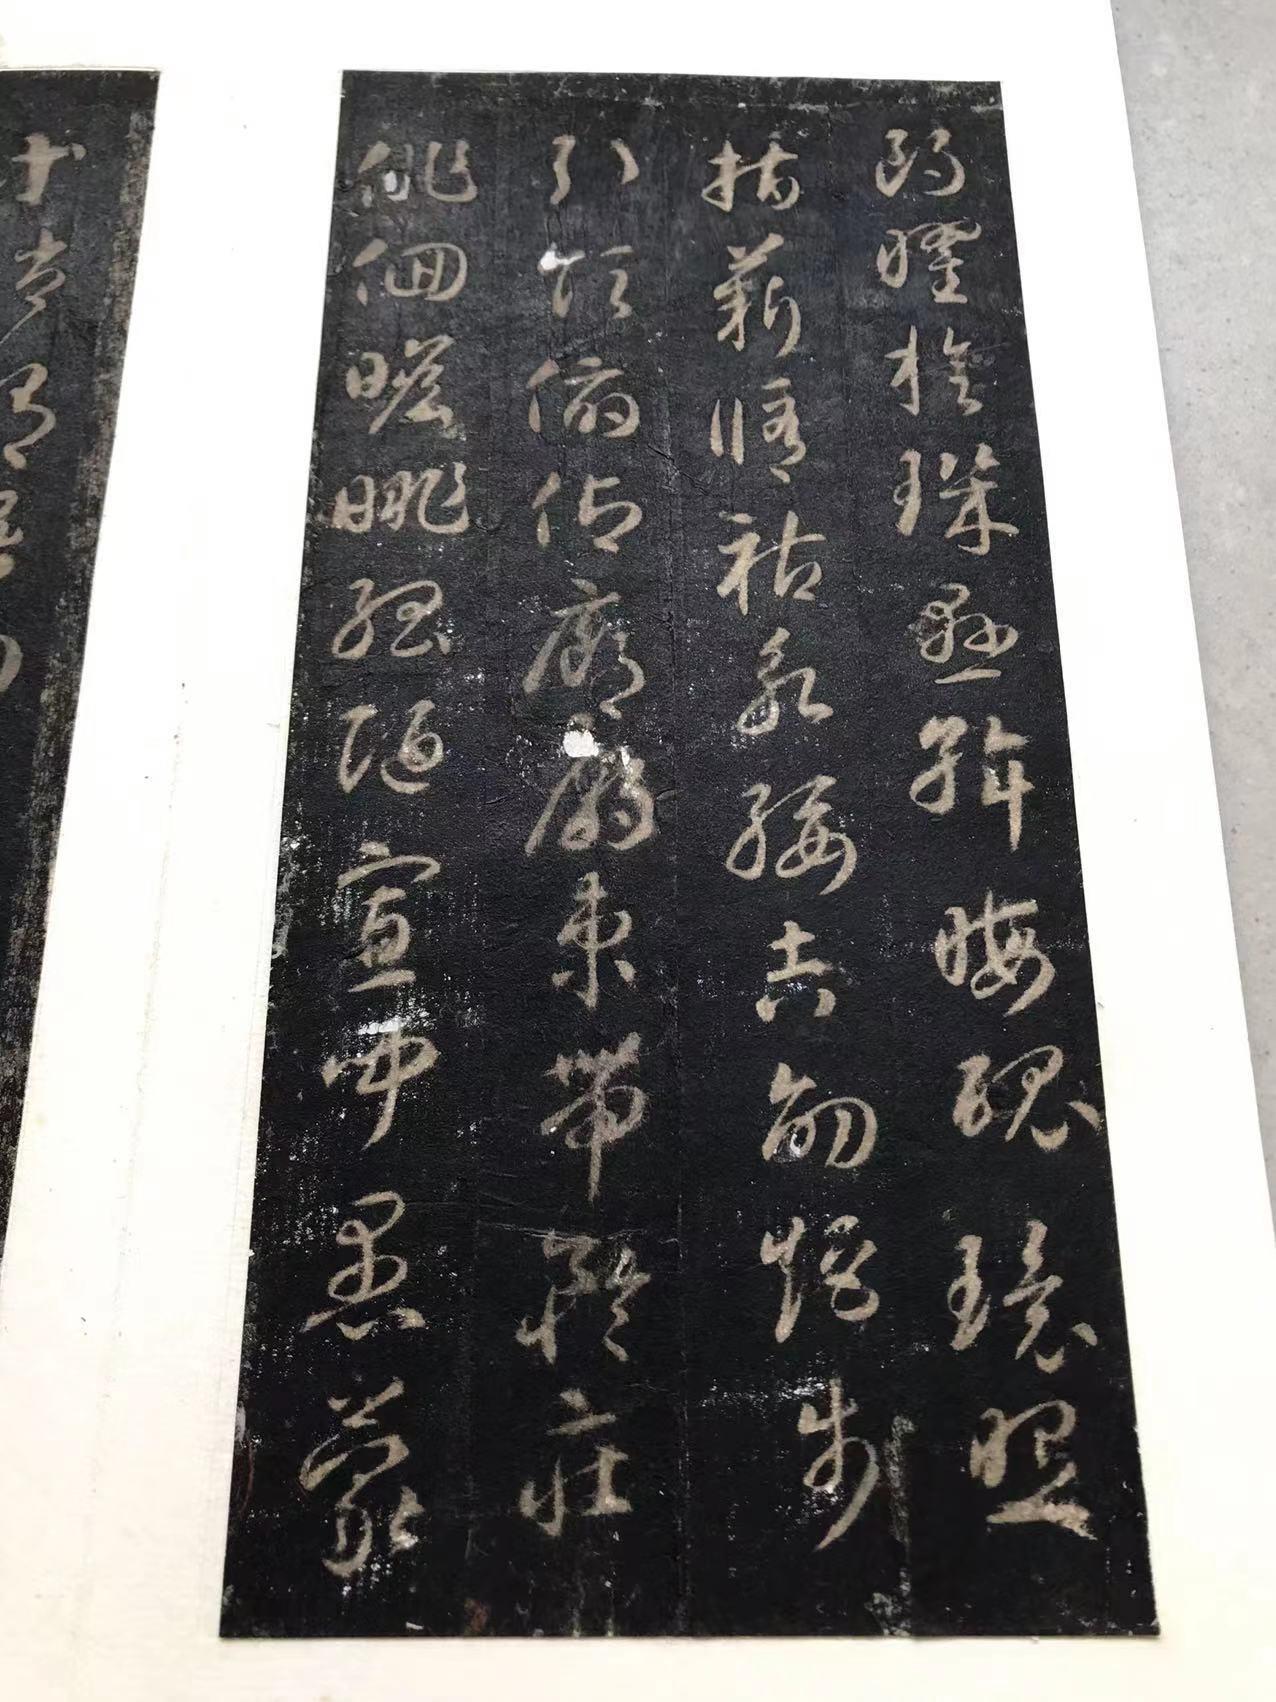 朗曜旋璣懸斡晦魄環照
指薪修祜永綏吉劭矩步
引領俯仰廊廟束帶矜莊
徘徊瞻眺孤陋寡聞愚蒙